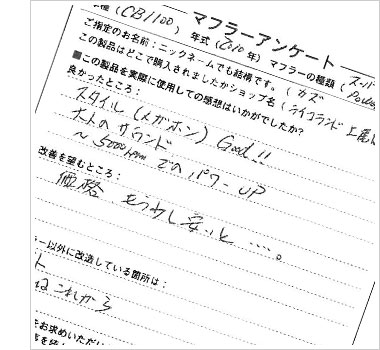 種 (CB1100) 年式 (2010 年) マフラーの種類 (スーパー
マフラーアンケート
ご指定のお名前:ニックネームでも結構です。( カズ
この製品はどこで購入されましたかショップ名 (ライコランド
■この製品を実際に使用しての感想はいかがでしたか?
良かったところ:
スタイル (メガホン) Good!!
大人のサウンド
~5000rpm でのパワーUP
改善を望むところ:
価格 もう少し安いと ‥‥。
ー以外に改造している箇所は:
ト
はこれから
をお求めいただい